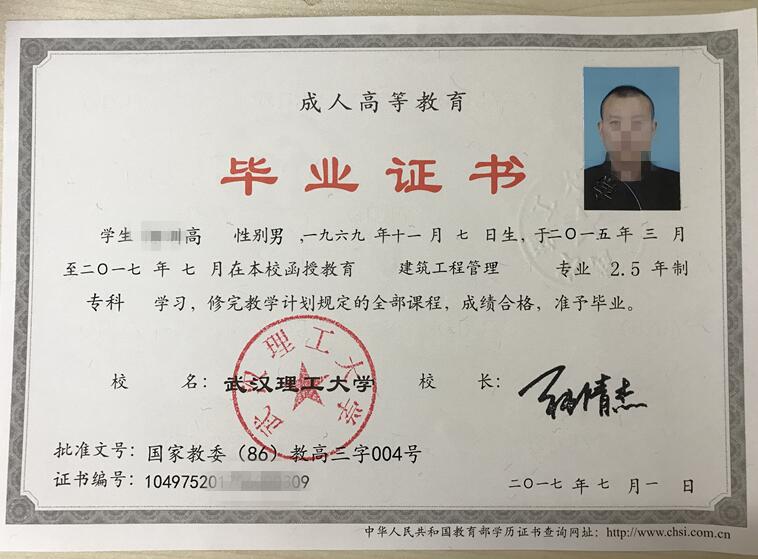 成人高等教育
毕业证书
学生 高 性别男 ,一九六九 年十一 月 七 日生，于二〇一五年 三 月
至二〇一七 年 七 月在本校函授教育 建筑工程管理 专业 2.5 年制
专科 学习，修完教学计划规定的全部课程，成绩合格，准予毕业。
武汉理工大学
校 名：武汉理工大学 校 长：
批准文号：国家教委（86）教高三字004号
证书编号：104975201 309
二〇一七 年 七 月 一 日
中华人民共和国教育部学历证书查询网址：http://www.chsi.com.cn